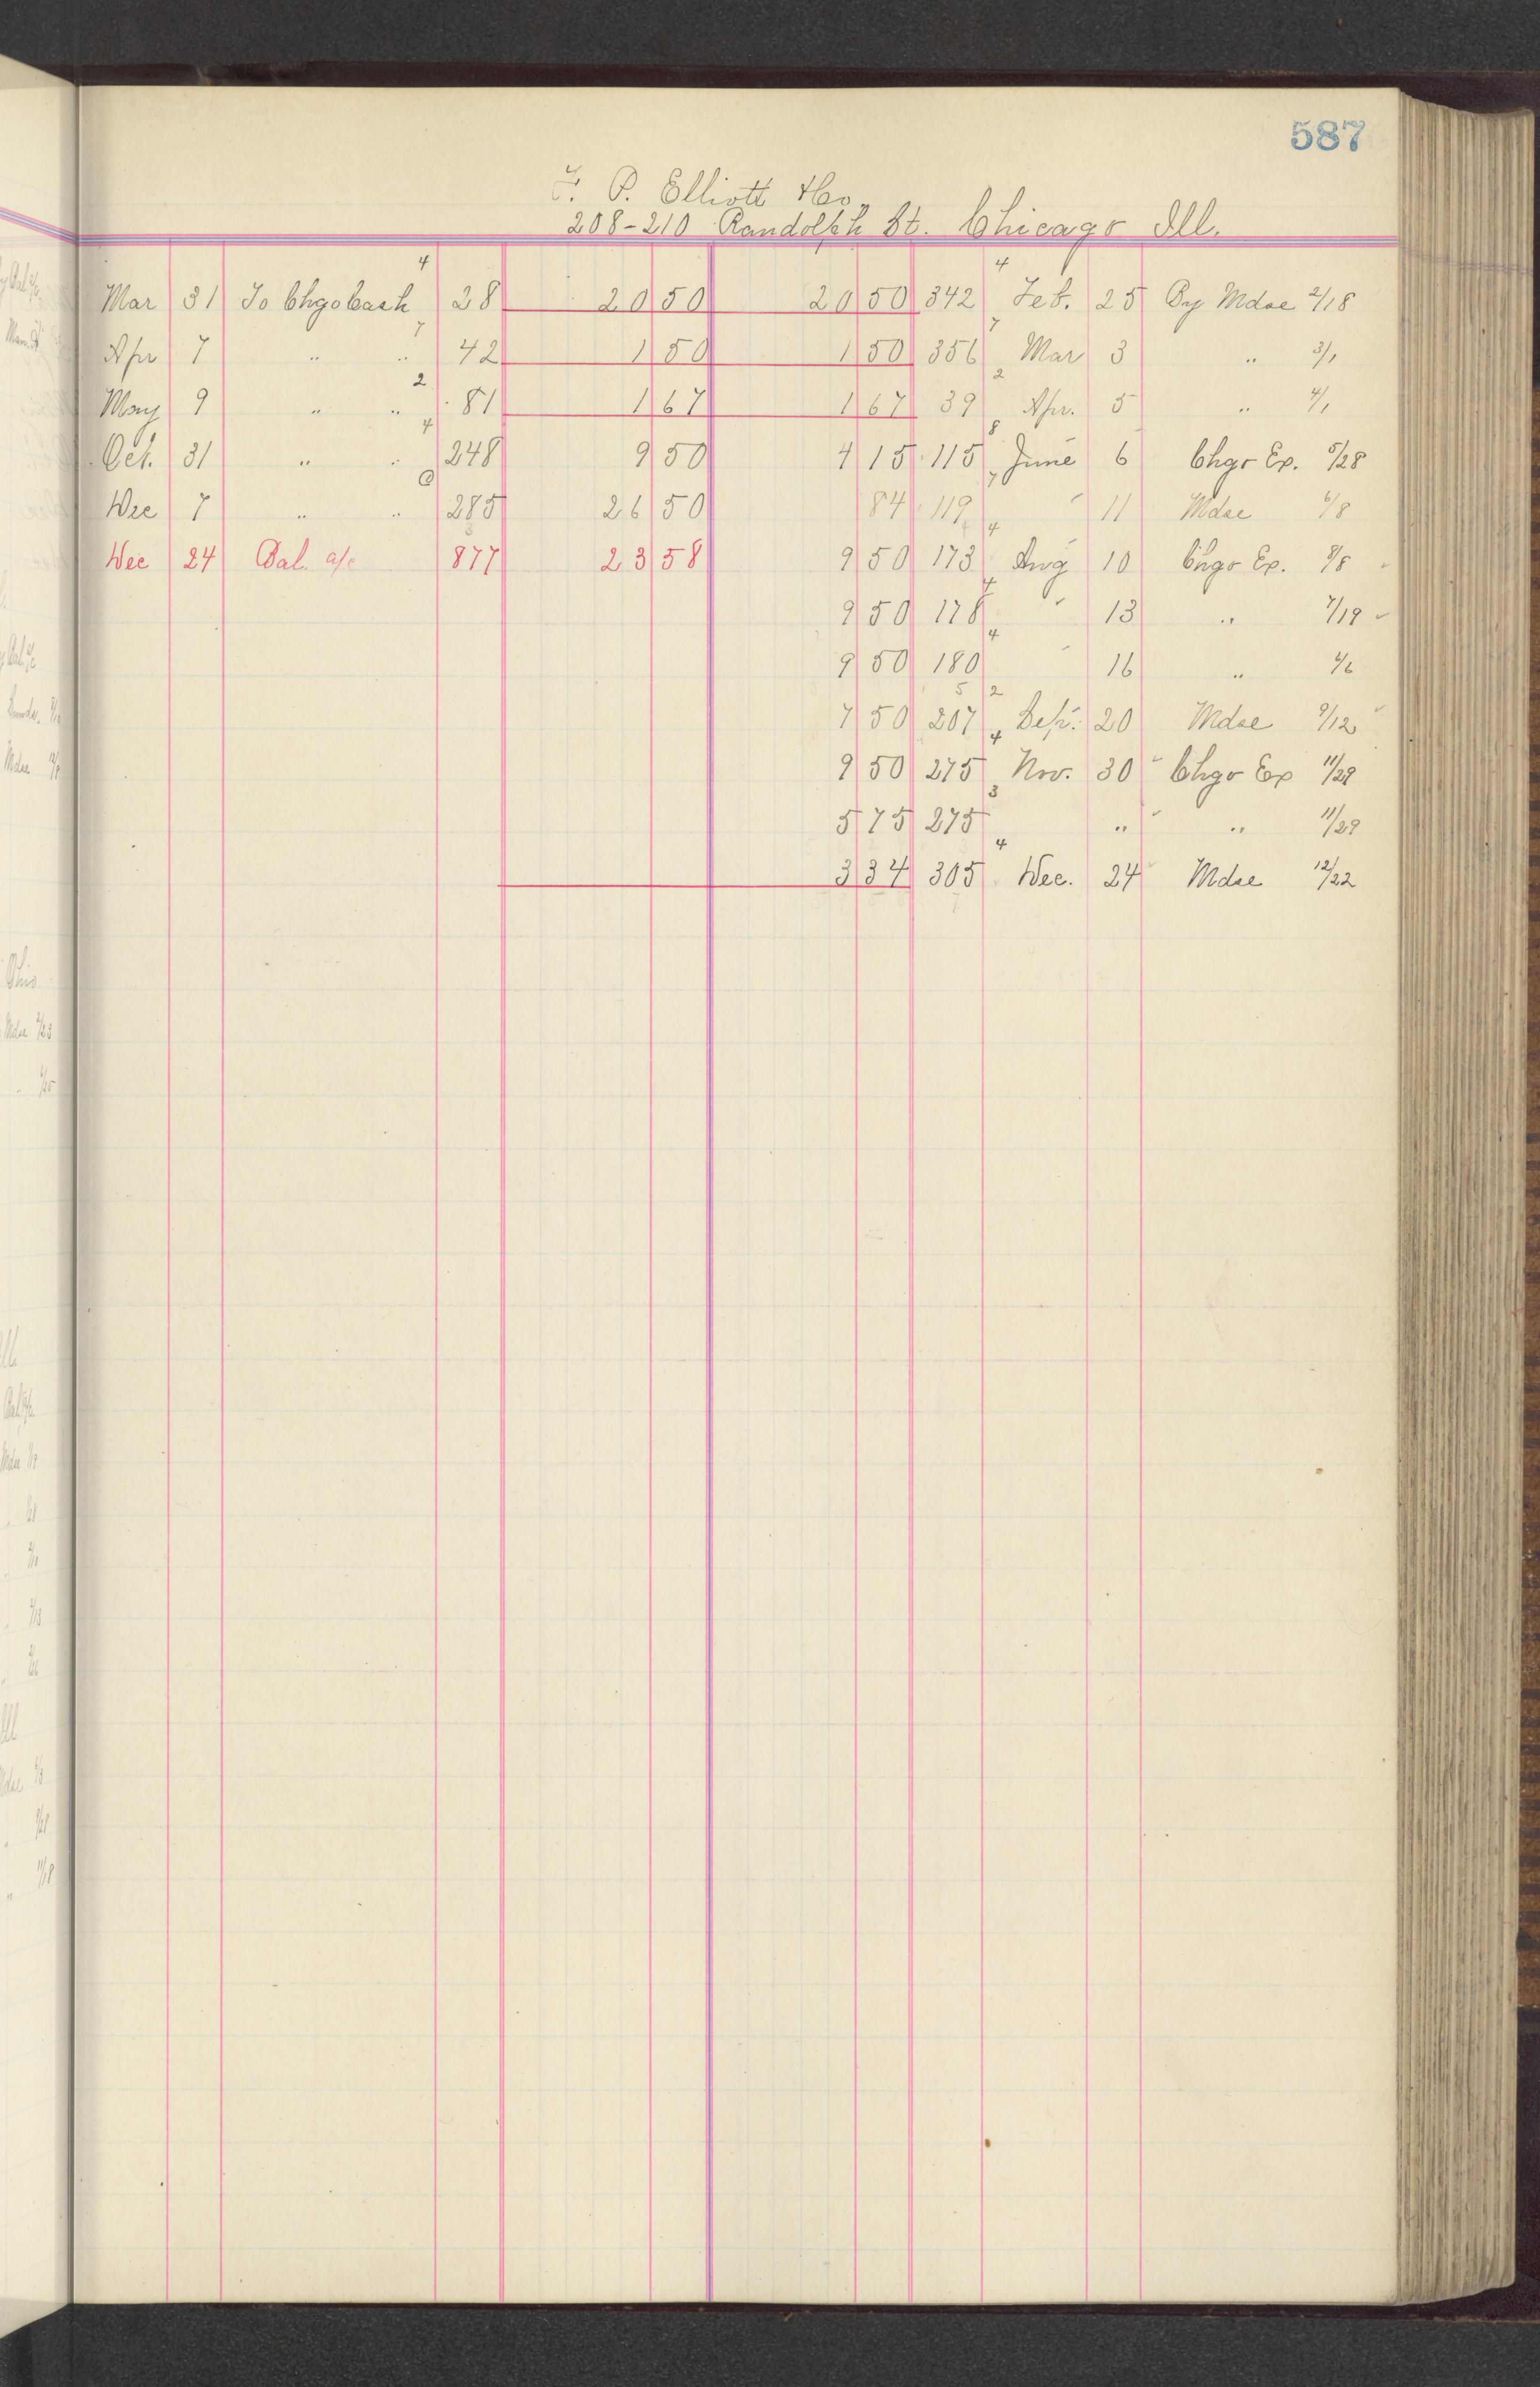 587
F. P. Elliott & Co.
208-210 Randolph St. Chicago Ill.
4 4
Mar 31 To Chgo Cash 28 20 50 20 50 342 Feb. 25 By Mdse 2/18
7 7
Apr 7 " " 42 1 50 1 50 356 Mar 3 " 3/1
2 2
May 9 " " 81 1 67 1 67 39 Apr. 5 " 4/1
4 8
Oct. 31 " " 248 9 50 4 15 115 June 6 Chgo Ex. 5/28
7
Dec 7 " " 285 26 50 84 119 " 11 Mdse 6/8
4
Dec 24 Bal. a/c 877 23 58 9 50 173 Aug 10 Chgo Ex. 8/8
4
9 50 178 " 13 " 7/19
4
9 50 180 " 16 "
5 2
7 50 207 Sept. 20 Mdse 9/12
4
9 50 275 Nov. 30 Chgo Ex 11/29
3
5 75 275 " " 11/29
4
3 34 305 Dec. 24 Mdse 12/22